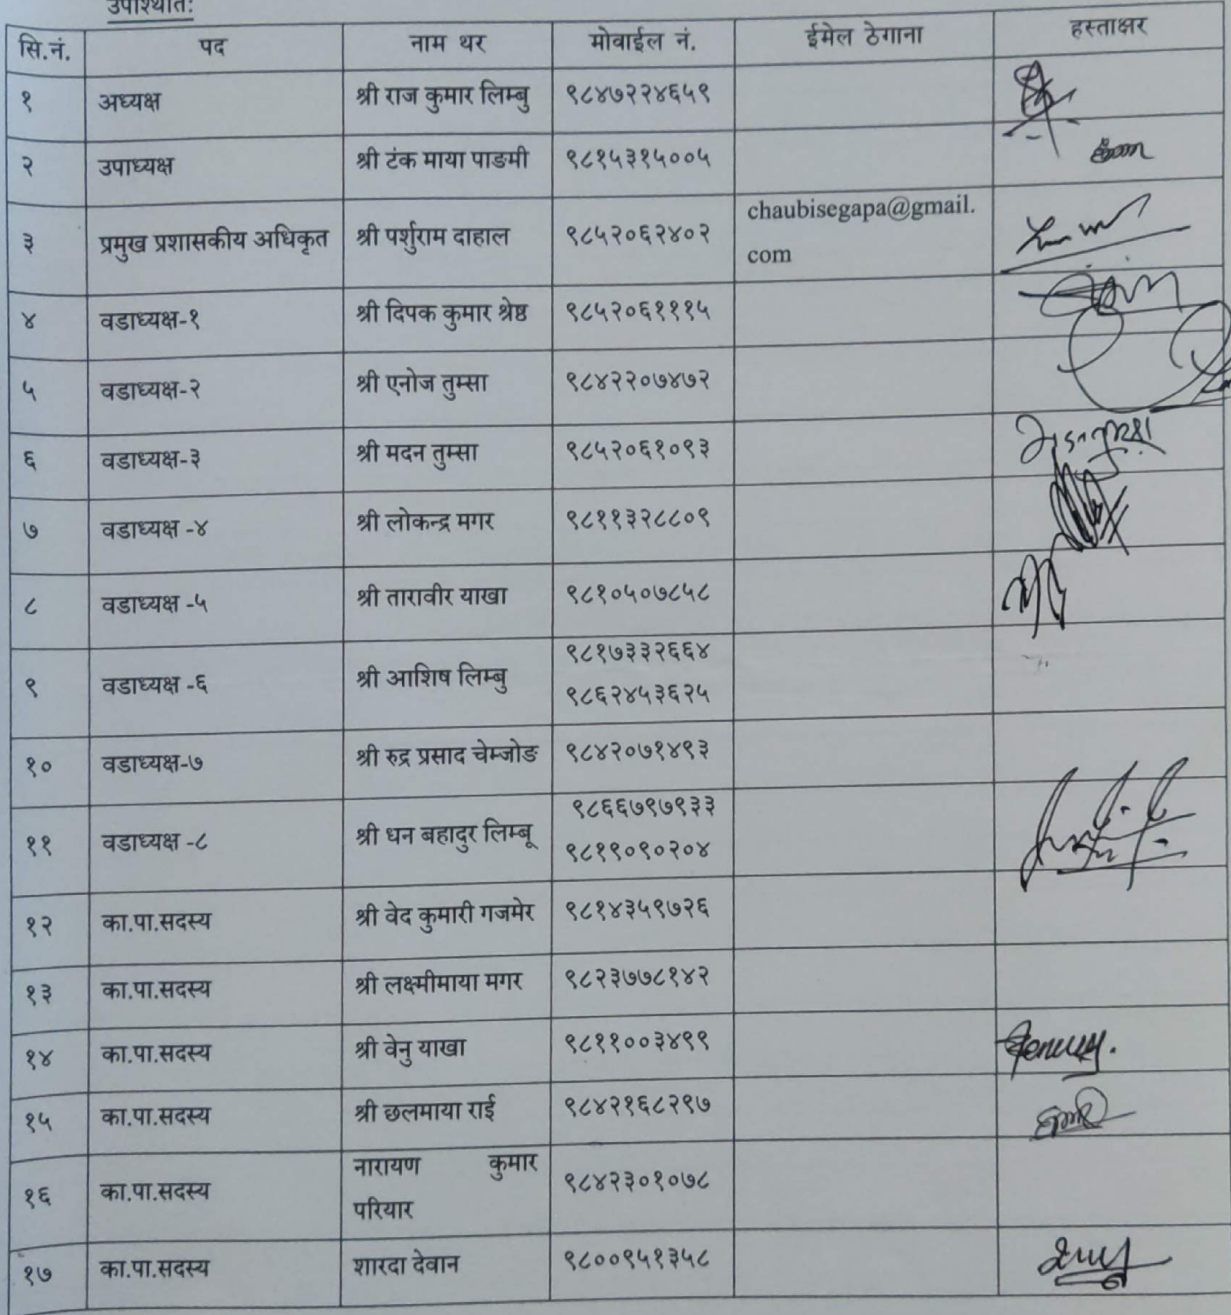 उपस्थिति:
सि.नं. पद नाम थर मोवाईल नं. ईमेल ठेगाना हस्ताक्षर
१ अध्यक्ष श्री राज कुमार लिम्बु ९८४७२२४६५९
२ उपाध्यक्ष श्री टंक माया पाङमी ९८१५३१५००५
३ प्रमुख प्रशासकीय अधिकृत श्री पर्शुराम दाहाल ९८५२०६२४०२ chaubisegapa@gmail.
com
४ वडाध्यक्ष-१ श्री दिपक कुमार श्रेष्ठ ९८५२०६१११५
५ वडाध्यक्ष-२ श्री एनोज तुम्सा ९८४२२०७४७२
६ वडाध्यक्ष-३ श्री मदन तुम्सा ९८५२०६१०९३
७ वडाध्यक्ष -४ श्री लोकन्द्र मगर ९८११३२८८०९
८ वडाध्यक्ष -५ श्री तारावीर याखा ९८१०५०७८५८
९ वडाध्यक्ष -६ श्री आशिष लिम्बु ९८१७३३२६६४
९८६२४५३६२५
१० वडाध्यक्ष-७ श्री रुद्र प्रसाद चेम्जोङ ९८४२०७१४९३
११ वडाध्यक्ष -८ श्री धन बहादुर लिम्बू ९८६६७९७९३३
९८१९०९०२०४
१२ का.पा.सदस्य श्री वेद कुमारी गजमेर ९८१४३५९७२६
१३ का.पा.सदस्य श्री लक्ष्मीमाया मगर ९८२३७७८१४२
१४ का.पा.सदस्य श्री वेनु याखा ९८११००३४९९
१५ का.पा.सदस्य श्री छलमाया राई ९८४२१६८२९७
१६ का.पा.सदस्य नारायण कुमार
परियार ९८४२३०१०७८
१७ का.पा.सदस्य शारदा देवान ९८००९५१३५८